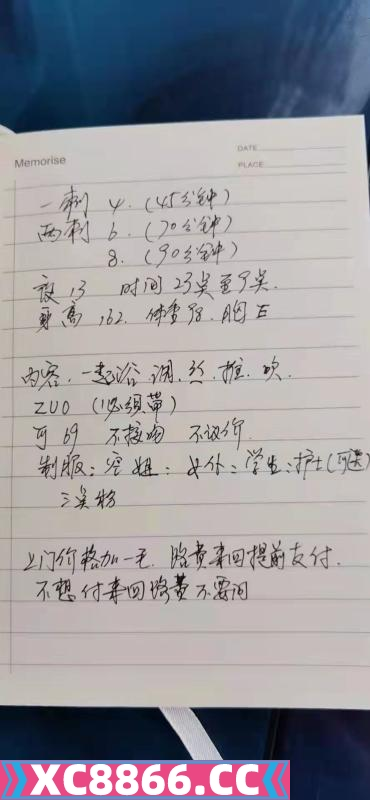 Memorise
DATE
PLACE
一刺 4. (45分钟)
两刺 6. (70分钟)
8. (90分钟)
夜 13 时间 23点至9点.
身高 162. 体重98. 胸 E
内容. 一起浴. 调. 丝. 推. 吹.
ZUO (必须带)
可69 不接吻 不议价.
制服: 空姐: 女仆: 学生: 护士(可选)
上门价格加一毛. 路费来回提前支付.
不想付来回路费不要问
XC8866.CC